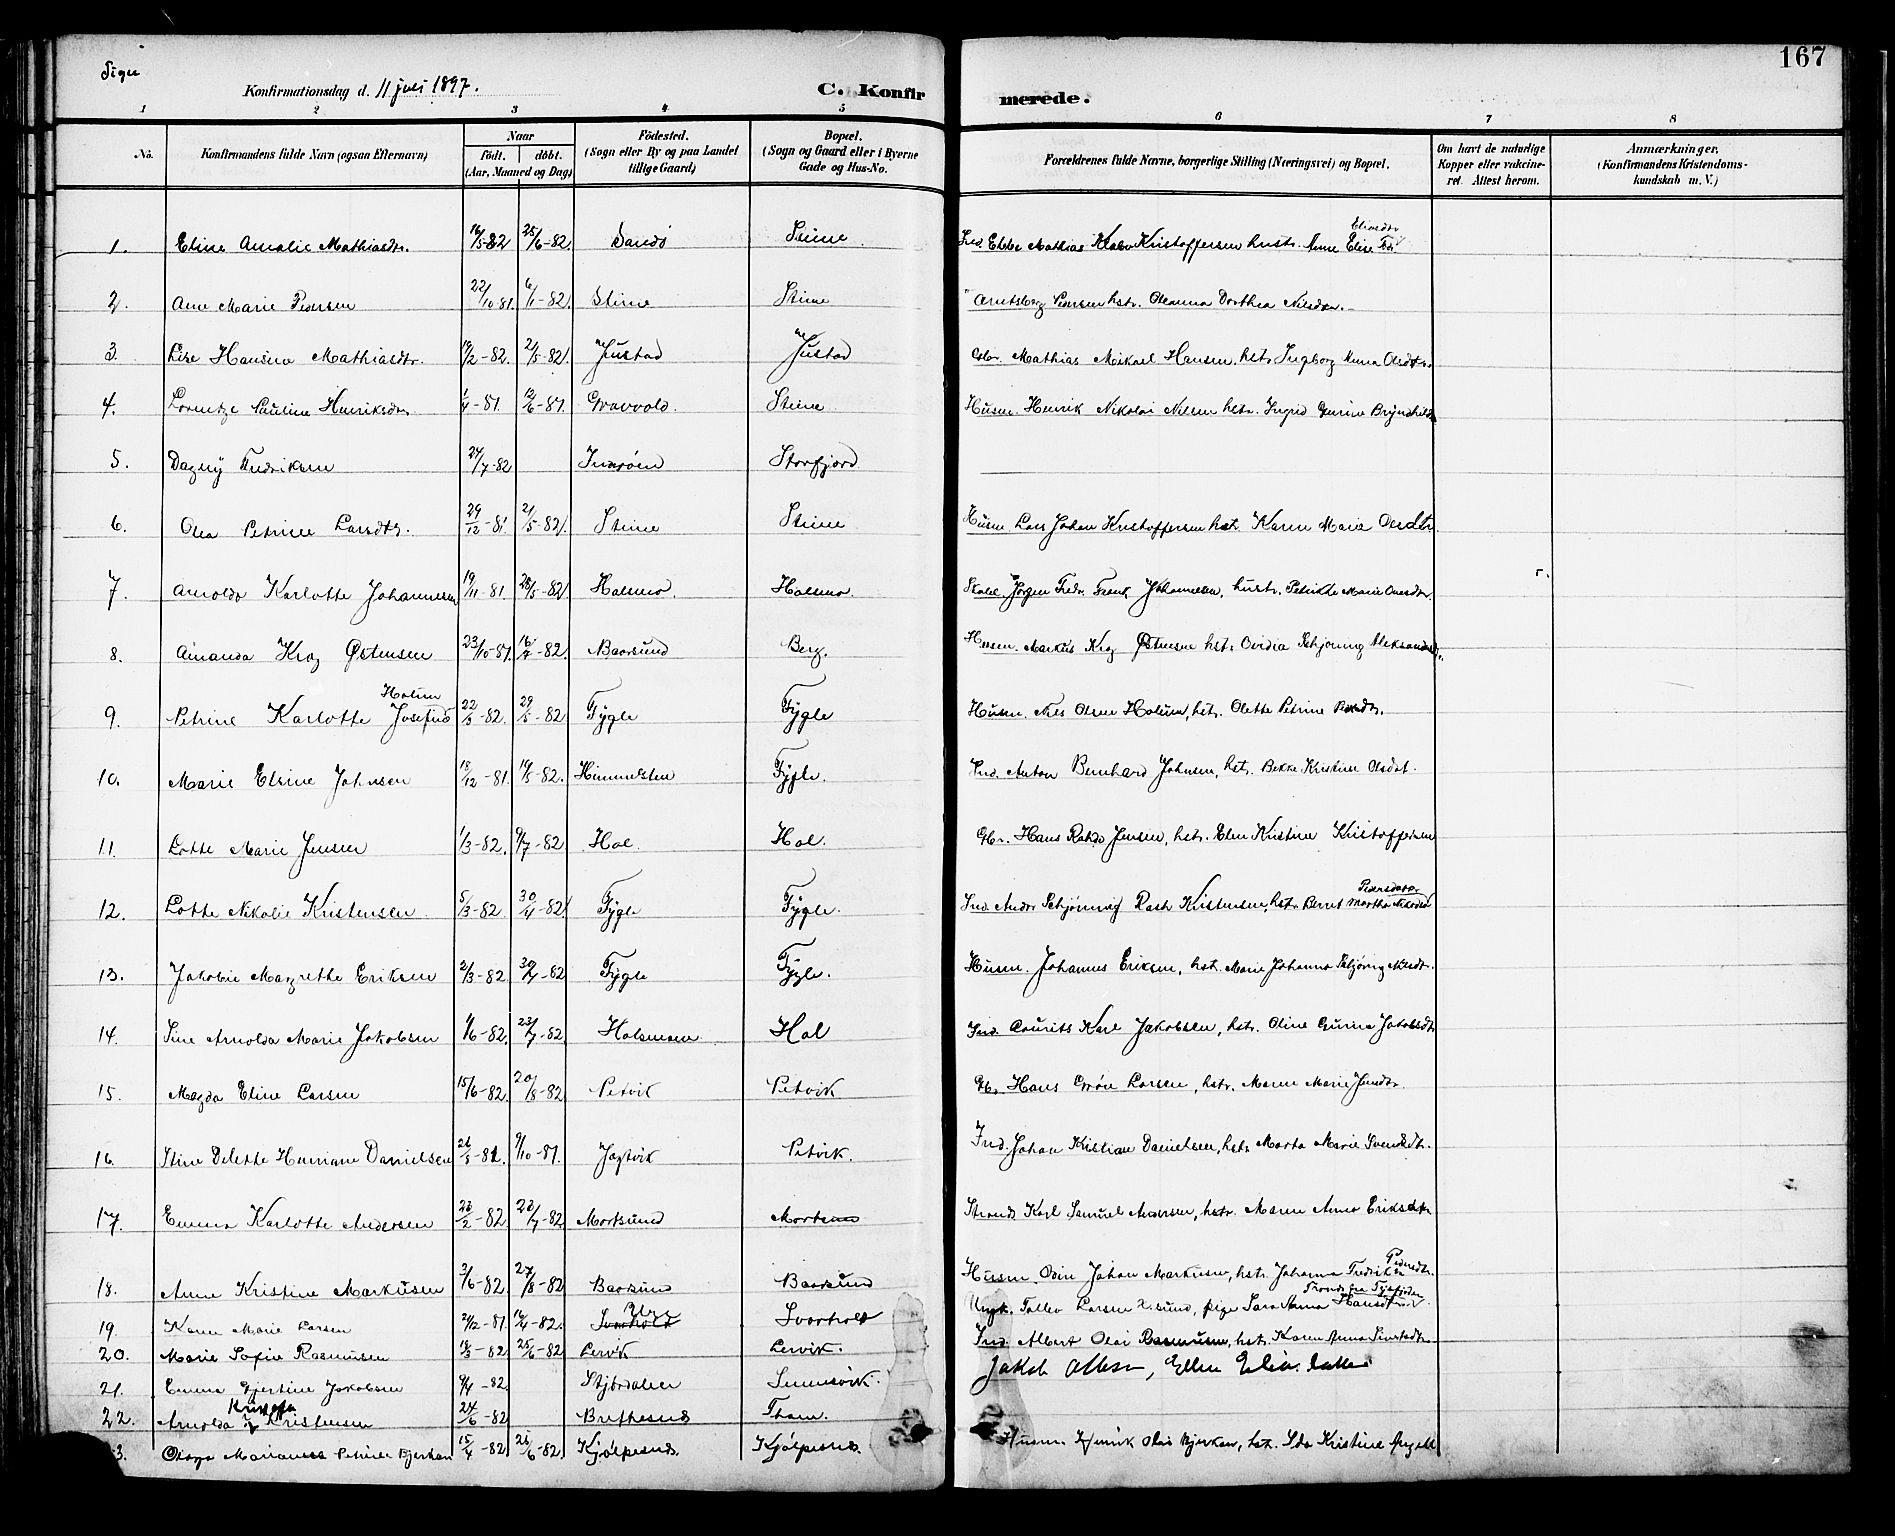 167
Piger
Konfirmationsdag d. 11 juli 1897. C. Konfirmerede.
1 2 3 4 5 6 7 8
No. Konfirmandens fulde Navn (ogsaa Efternavn) Naar født. døbt. (Aar, Maaned og Dag) Fødested. (Sogn eller By og paa Landet tillige Gaard) Bopæl. (Sogn og Gaard eller i Byerne Gade og Hus-No. Forældrenes fulde Navne, borgerlige Stilling (Næringsvei) og Bopæl. Om havt de naturlige Kopper eller vakcineret. Attest herom. Anmærkninger, (Konfirmandens Kristendomskundskab m. V.)
1. Eline Amalie Mathiasdtr. 16/5-82 25/6-82 Sandö Stene Mathias Kristoffersen hustr. Anne Elise
2. Ane Marie Pedersen 22/10 81. 6/1-82 Stene Stene Pedersen hstr. Oleanna Dorthea Nilsdtr.
3. Lise Hansina Mathiasdtr. 19/2-82. 21/5-82 Justad Justad Mathias Mikael Hansen, hstr. Ingborg Anna Olsdtr.
4. Lorentze Pauline Henriksdtr. 1/4-81. 12/6-81. Gravvold. Stene Husm. Henrik Nikolai Nilsen hstr. Ingrid
5. Dagny Fredriksen 24/7-82 Storfjord
6. Olea Petrine Larsdtr. 29/12-81 21/5-82 Stene Stene Husm. Lars Johan Kristoffersen hstr. Karen Marie Olsdtr.
7. Arnolda Karlotte Johannesen 19/11-81. 28/5-82 Holsmo. Holsmo. Jörgen Fredr. Johannesen, hustr. Petrikke Marie
8. Amanda Krog Østensen 23/10-81 16/7-82. Baarsund Berg. Husm. Markus Krog Østensen hstr. Ovidia Schjöning
9. Petrine Karlotte Josefine Holum 22/3-82. 29/5-82 Fygle Fygle Husm. Nils Olsen Holum, hstr. Olette Petrine
10. Marie Elsine Johnsen 18/12-81. 19/5-82. Himmelsten Fygle. Ind. Anton Bernhard Johnsen, hstr. Bekke Kristine Olsdat.
11. Lotte Marie Jensen 1/3-82. 9/7-82 Hol. Hol. Gbr. Hans Jensen, hstr. Elen Kristine Kristoffersen
12. Lotte Nikolie Kristensen. 5/3-82. 30/4-82 Fygle Fygle. Ind. Andr. Schjönning Rasch Kristensen, hstr. Beret Martha Pedersdatr.
13. Jakobie Margrethe Eriksen 2/3-82 30/4-82 Fygle Fygle. Husm. Johannes Eriksen, hst. Marie Johanna Schjöning Nilsdtr.
14. Sine Arnolda Marie Jakobsen 9/6-82. 23/7-82 Holsmoen. Hol Ind. Karl Jakobsen, hstr. Oline Jakobsdtr
15. Magda Eline Larsen 15/6-82 20/8-82 Petvik Petvik Gbr. Hans Grön Larsen, hstr. Maren Marie
16. Stine Delette Danielsen 9/10-81. Jogtvik Petvik. Ind. Johan Kristian Danielsen, hstr. Marta Marie Svendsdtr.
17. Emma Karlotte Andersen 23/2-82. 23/7-82 Mortsund Mortsund Karl Samuel Andersen, hstr. Maren Anna Eriksdtr
18. Anne Kristine Markusen 3/6-82. 27/8-82 Baarsund Baarsund Husm. Odin Johan Markusen, hstr. Johanna Fredrikke Pedersdtr.
19. Karen Marie Larsen 2/12-81. Ure Svarholt Ungk. Tollev Larsen pige Sara Anna Hansdtr.
20. Marie Sofie Rasmusen 25/6-82 Lervik Lervik. Ind. Albert Olai Rasmusen, hst. Karen Anna
21. Emma Gjertine Jakobsen 9/4-82. Stjördalen Jakob Olsen, Ellen
22. Arnolda Kristensen 24/6-82
Marianne Petrine Bjerkan 15/4-82. 25/6-82 Kjölpesnes. Kjölpesnes. Husm. Bjerkan, hst. Ida Kristine